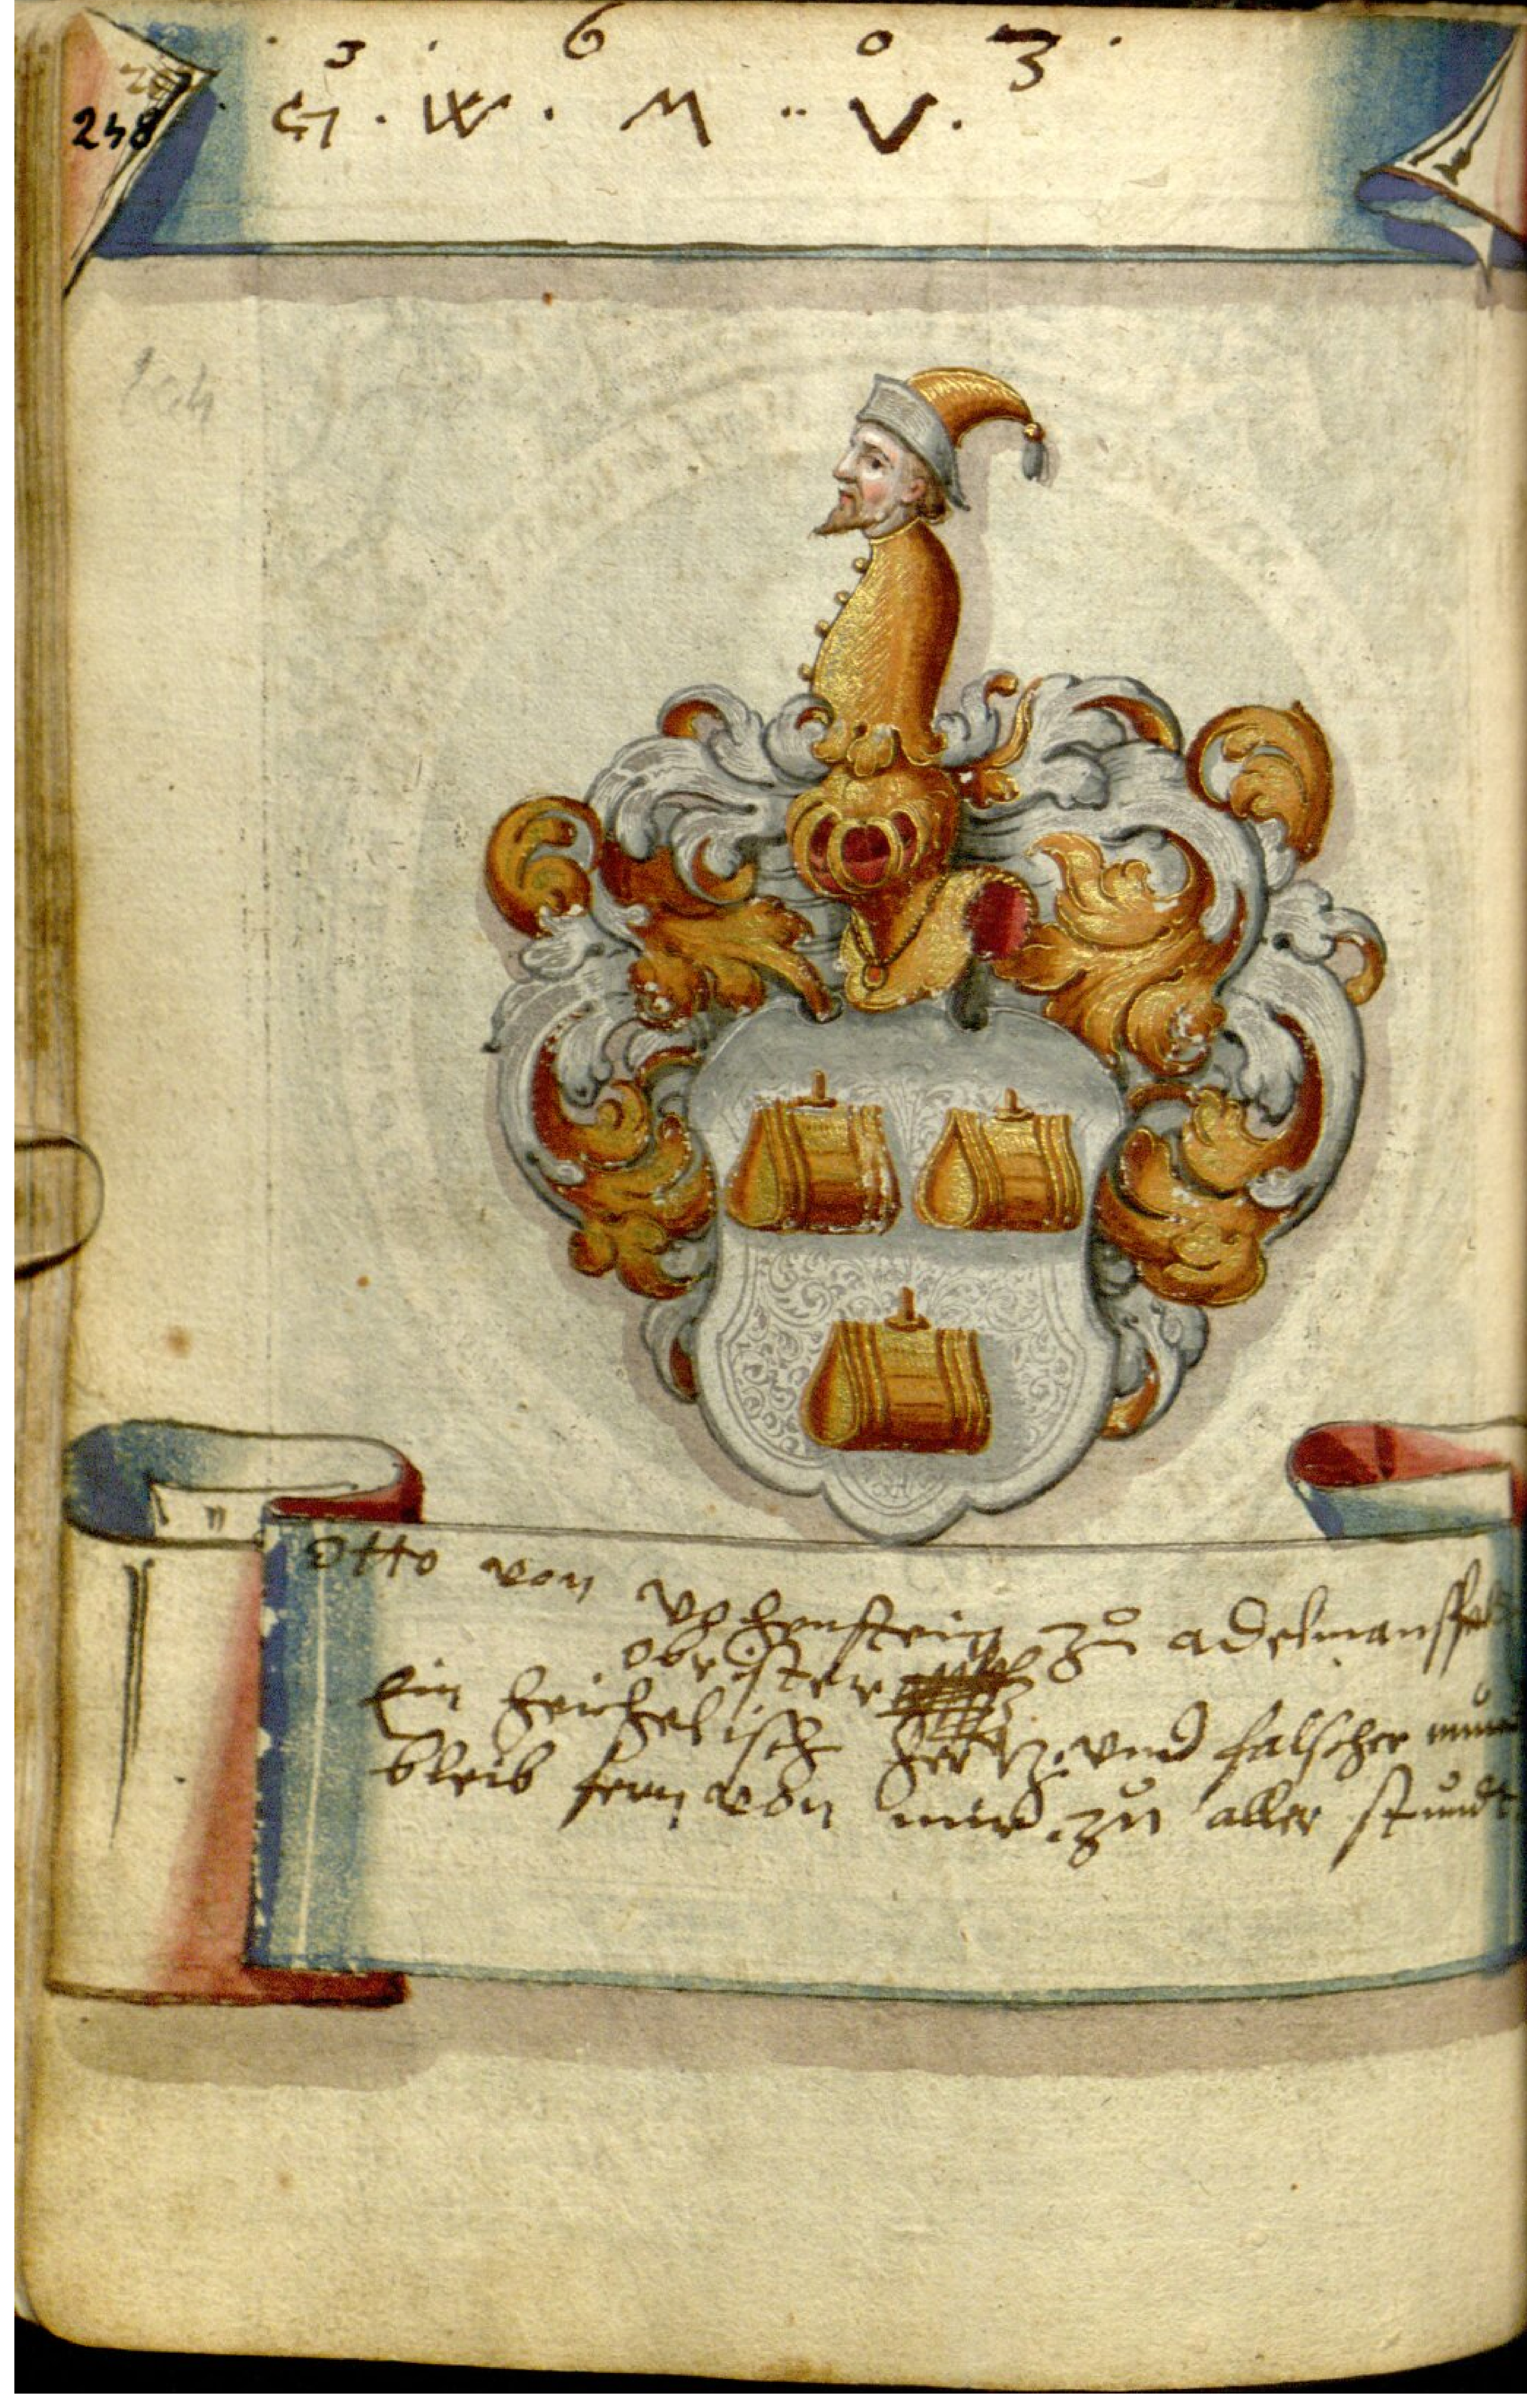 . 3 . 6 0 3 .
248
G . W . M .. V .
104
Otto von Vohenstein zů adelmansfel
obrister
Ein heichelisch hertz vnd falscher mun
bleib fern von mir zu aller stundt